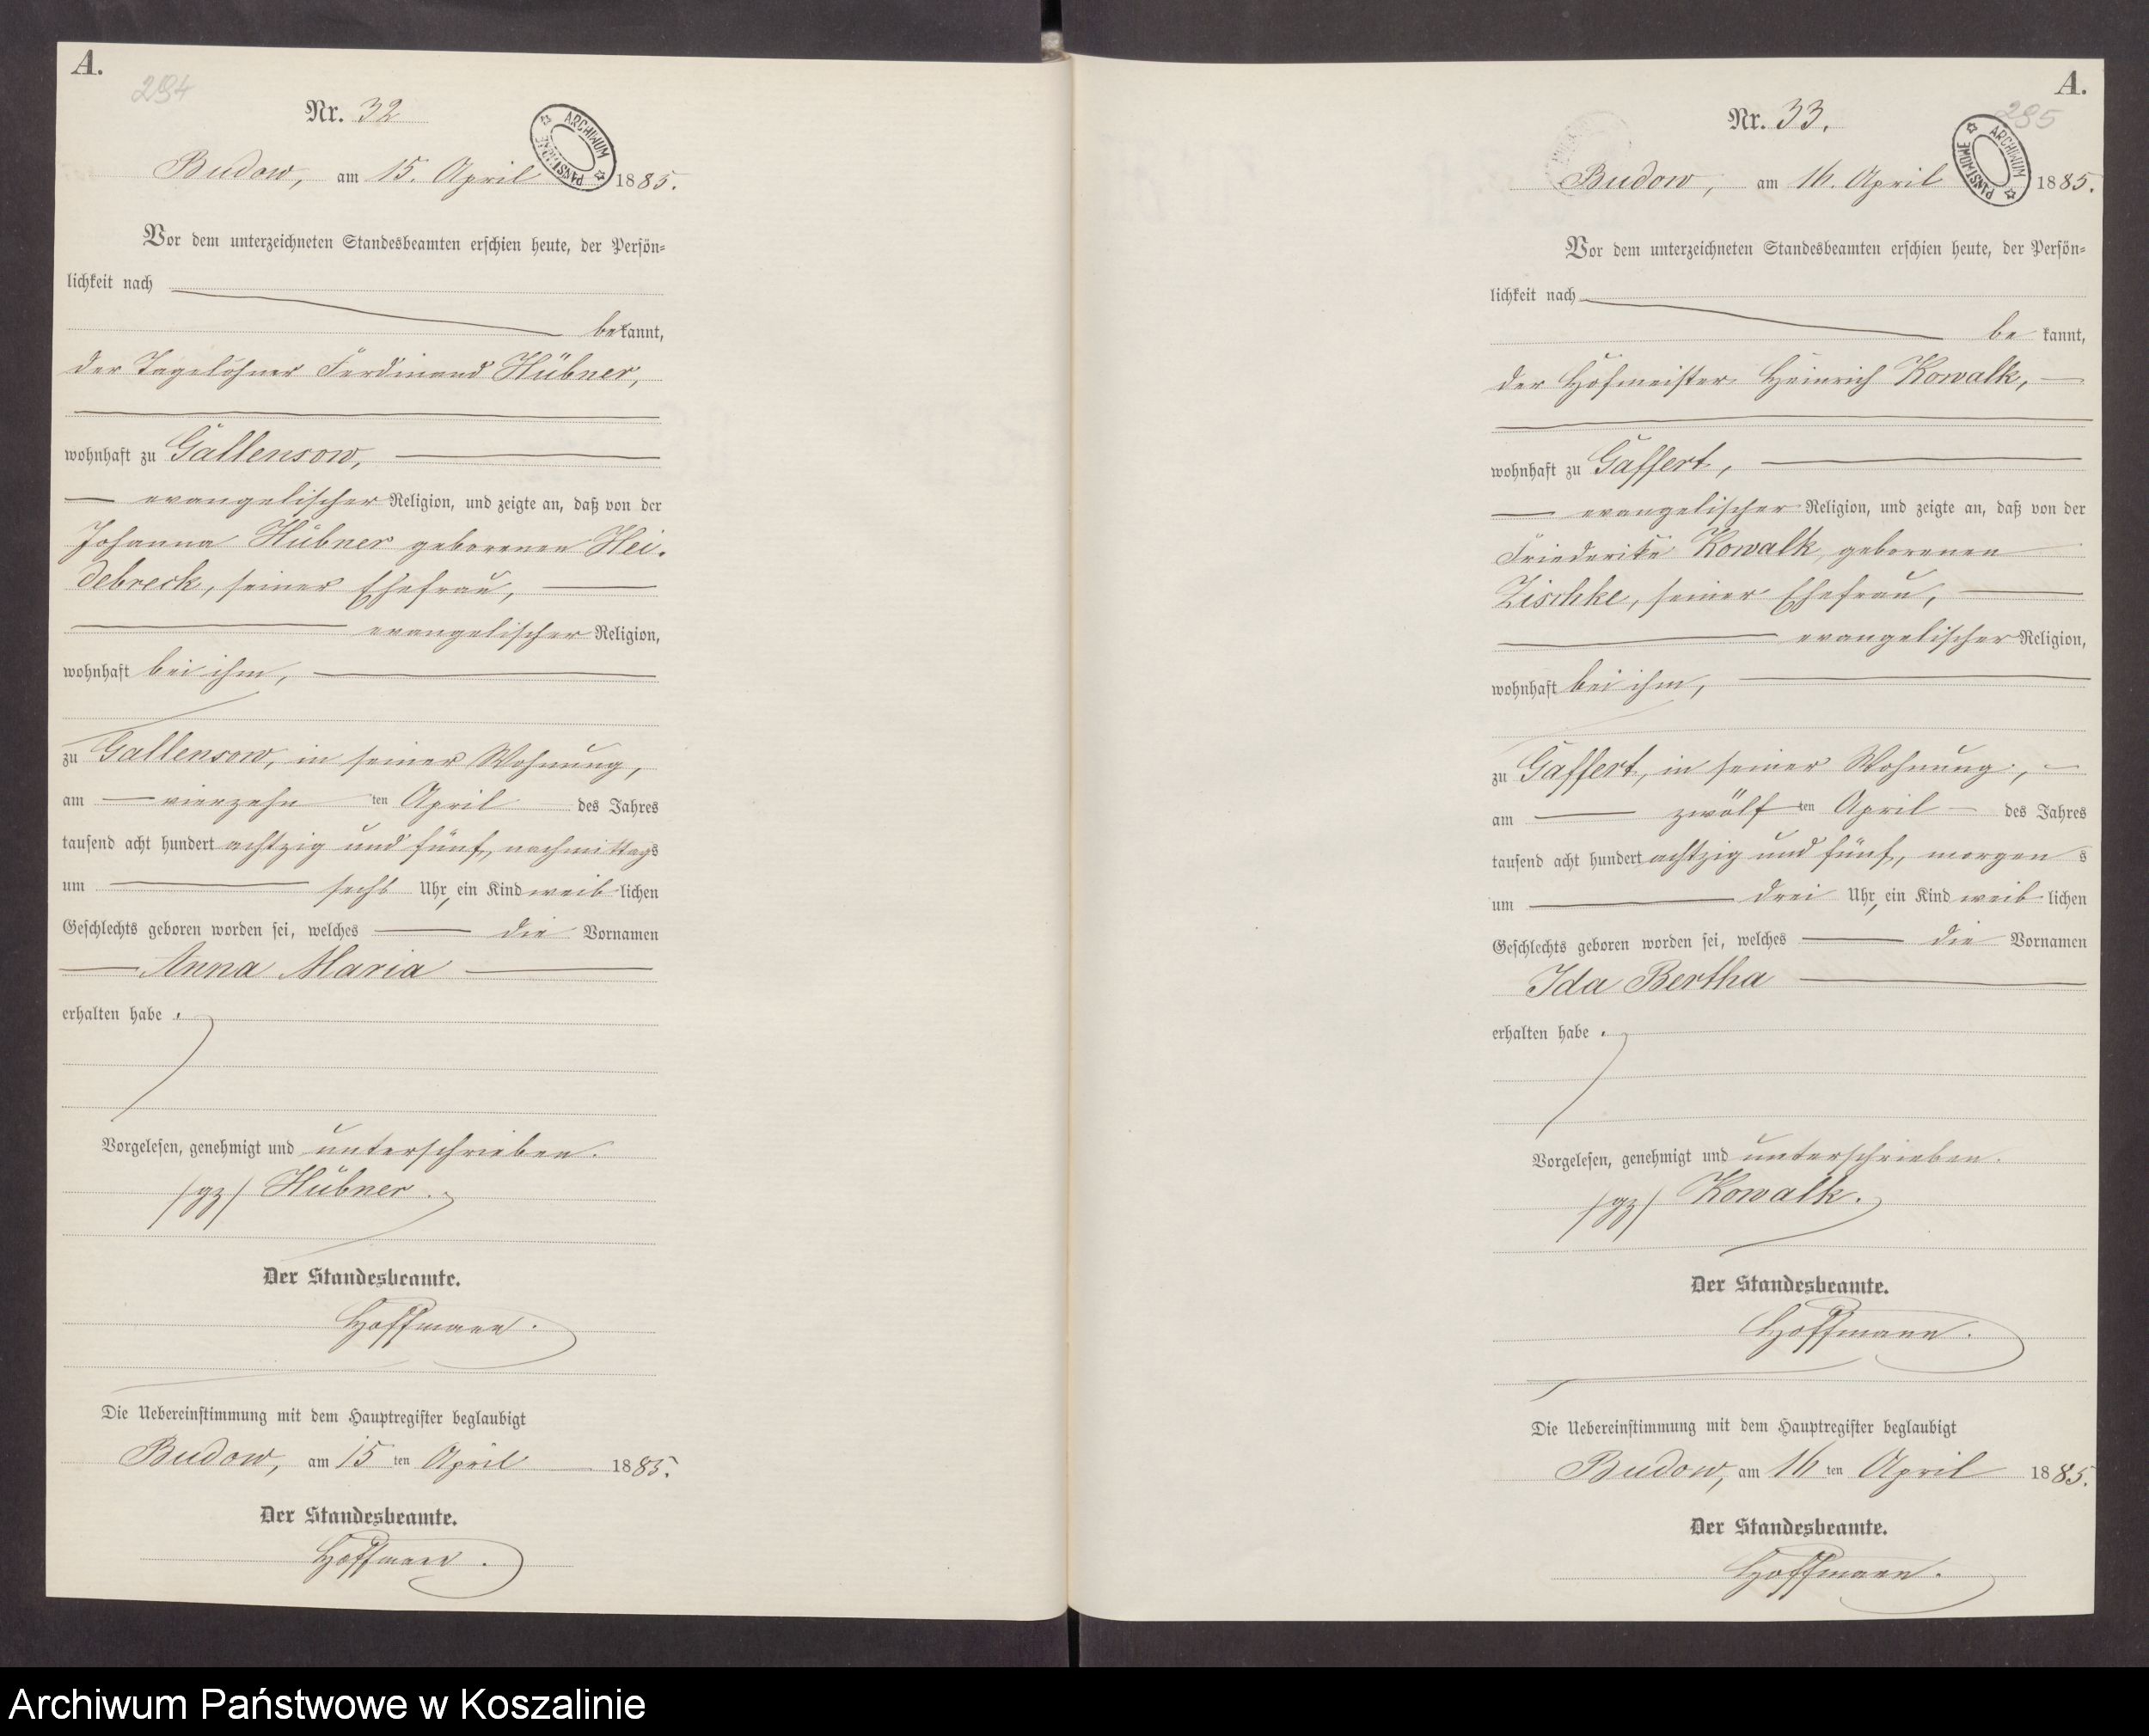 A.
294
Nr. 32
ARCHIWUM PAŃSTWOWE
Budow, am 15. April 1885.
Vor dem unterzeichneten Standesbeamten erschien heute, der Persön-
lichkeit nach
bekannt,
der Tagelöhner Ferdinand Hübner,
wohnhaft zu Gallensow,
evangelischer Religion, und zeigte an, daß von der
Johanna Hübner geborenen Hei-
debreck, seiner Ehefrau,
evangelischer Religion,
wohnhaft bei ihm,
zu Gallensow, in seiner Wohnung,
am vierzehn ten April des Jahres
tausend acht hundert achtzig und fünf, nachmittags
um sechs Uhr, ein Kind weiblichen
Geschlechts geboren worden sei, welches die Vornamen
Anna Maria
erhalten habe.
Vorgelesen, genehmigt und unterschrieben.
/gz/ Hübner.
Der Standesbeamte.
Hoffmann.
Die Uebereinstimmung mit dem Hauptregister beglaubigt
Budow, am 15 ten April 1885.
Der Standesbeamte.
Hoffmann.
A.
295
Nr. 33.
ARCHIWUM PAŃSTWOWE
Budow, am 16. April 1885.
Vor dem unterzeichneten Standesbeamten erschien heute, der Persön-
lichkeit nach
bekannt,
der Hofmeister Heinrich Kowalk,
wohnhaft zu Gaffert,
evangelischer Religion, und zeigte an, daß von der
Friederike Kowalk, geborenen
Zischke, seiner Ehefrau,
evangelischer Religion,
wohnhaft bei ihm,
zu Gaffert, in seiner Wohnung,
am zwölf ten April des Jahres
tausend acht hundert achtzig und fünf, morgens
um drei Uhr, ein Kind weiblichen
Geschlechts geboren worden sei, welches die Vornamen
Ida Bertha
erhalten habe.
Vorgelesen, genehmigt und unterschrieben.
/gz/ Kowalk.
Der Standesbeamte.
Hoffmann.
Die Uebereinstimmung mit dem Hauptregister beglaubigt
Budow, am 16 ten April 1885.
Der Standesbeamte.
Hoffmann.
Archiwum Państwowe w Koszalinie